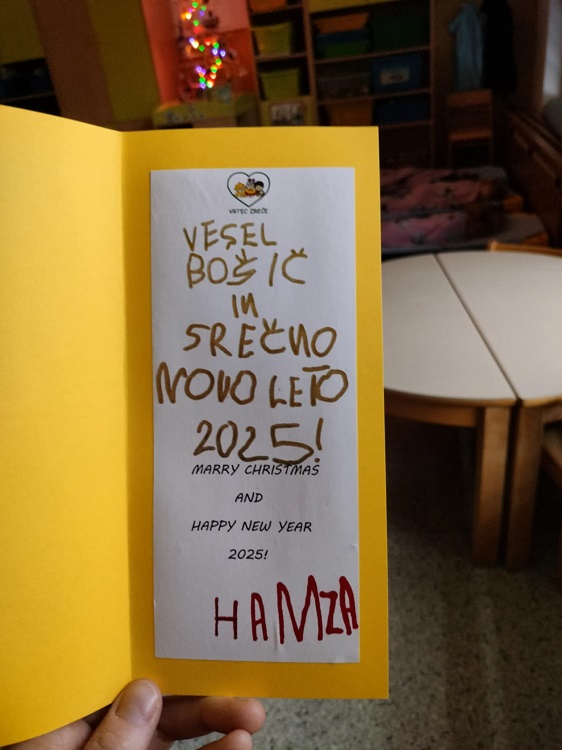 VRTEC ZREČE
VESEL
BOŠIČ
IN
SREČNO
NOVO LETO
2025!
MARRY CHRISTMAS
AND
HAPPY NEW YEAR
2025!
HAMZA